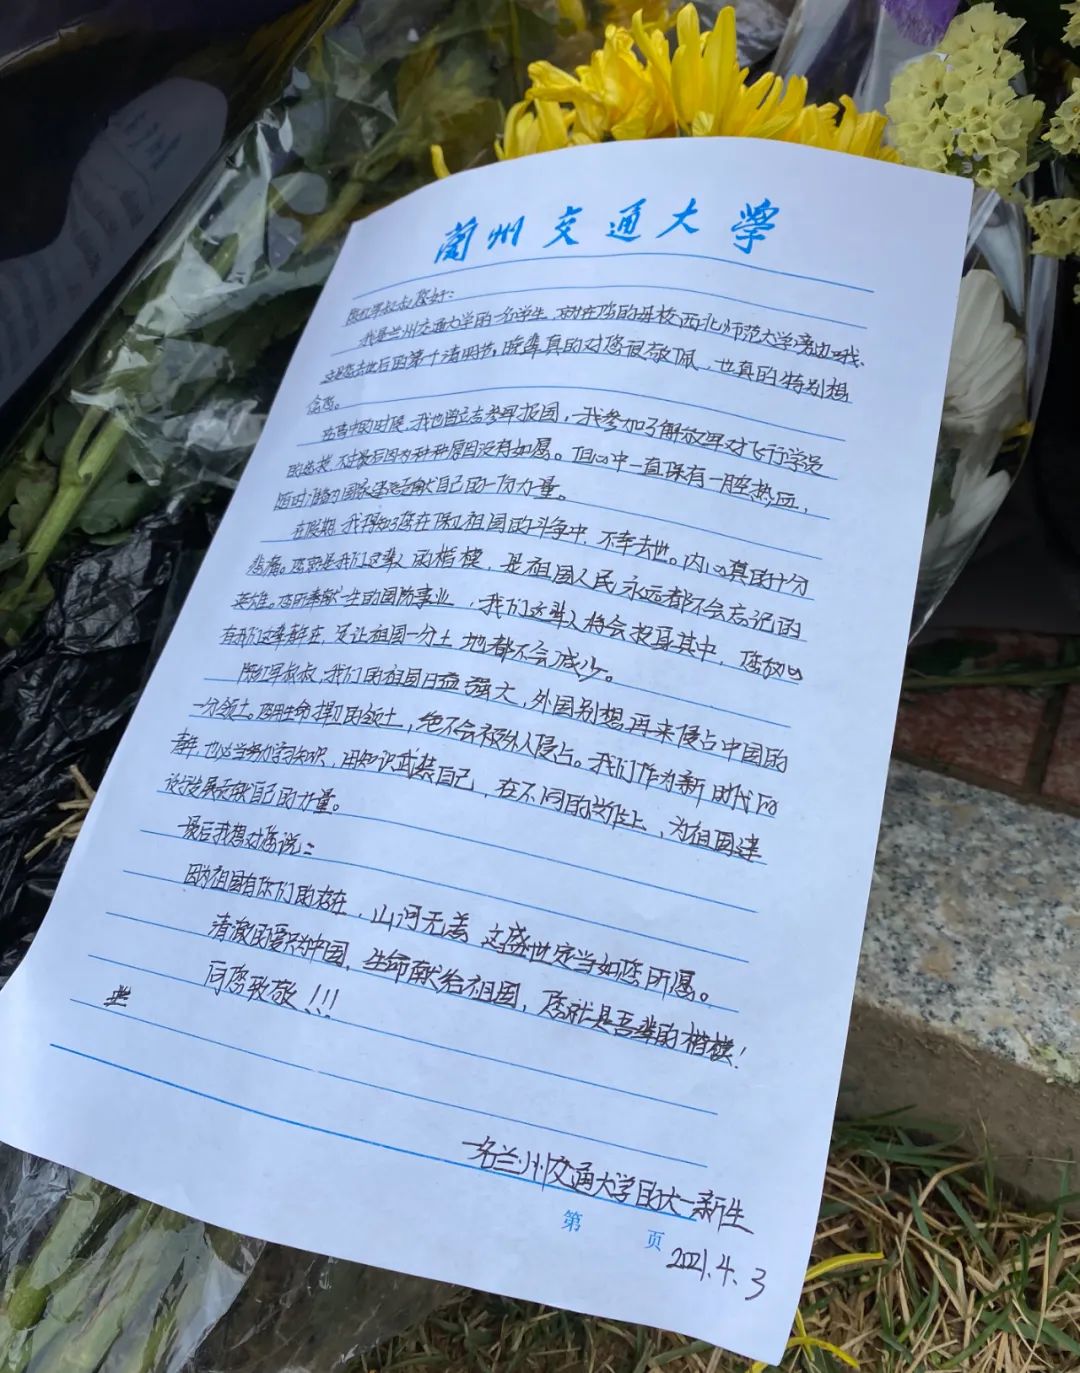 兰州交通大学
陈红军叔叔您好：
我是兰州交通大学的一名学生，就在您的母校西北师范大学旁边哦。
这是您去世后的第一个清明节，晚辈真的对您很敬佩，也真的特别想
念您。
在高中的时候，我也曾立志参军报国，我参加了解放军对飞行学员
的选拔，不过最后因为种种原因没有如愿。但心中一直保有一腔热血，
随时准备为国家建设贡献自己的一份力量。
在假期，我得知了您在保卫祖国的斗争中，不幸去世。内心真的十分
悲痛。您是我们这辈人的楷模，是祖国人民永远都不会忘记的
英雄。您所奉献一生的国防事业，我们这辈人将会投身其中，您放心
有我们这辈存在，不让祖国一分土地都不会减少。
陈红军叔叔，我们的祖国日益强大，外国别想再来侵占中国的
一分领土。您用生命捍卫的领土，绝不会被外人侵占。我们作为新时代的
青年，也必当努力学习知识，用知识武装自己，在不同的岗位上，为祖国建
设发展贡献自己的力量。
最后我想对您说：
因为祖国有你们的存在，山河无恙，这盛世定当如您所愿。
清澈的爱只为中国，生命献给祖国，您就是吾辈的楷模！
向您致敬！！！
一名兰州交通大学的大一新生
第 页
2021.4.3